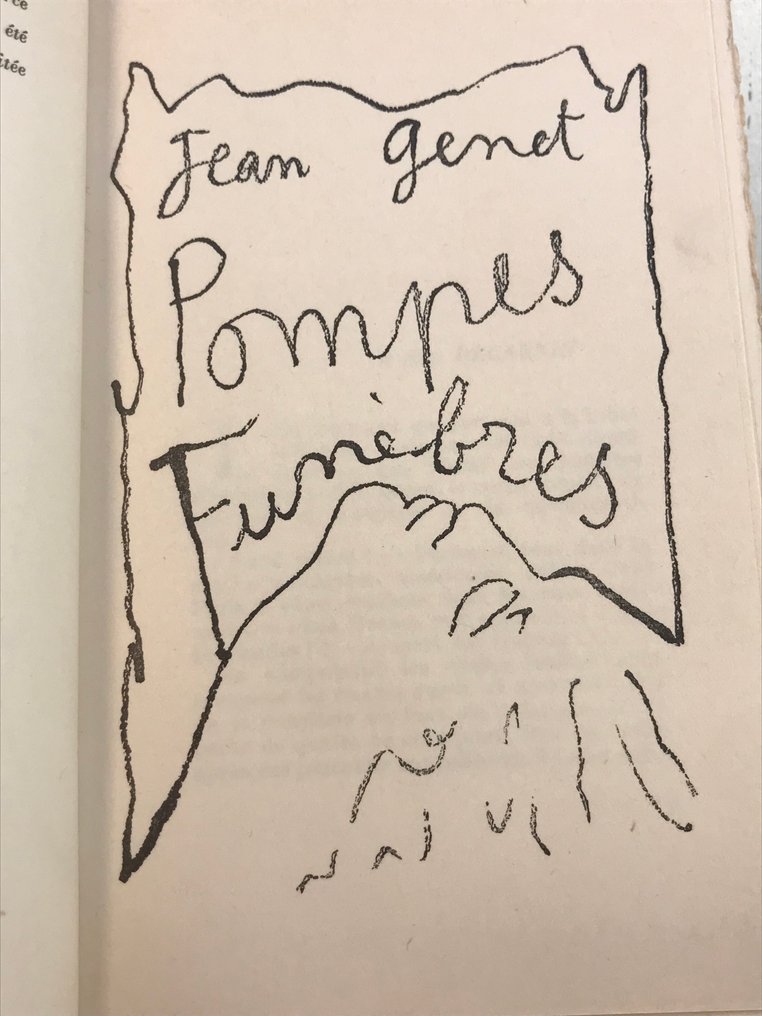 rce
été
itée
Jean Genet
Pompes
Funèbres